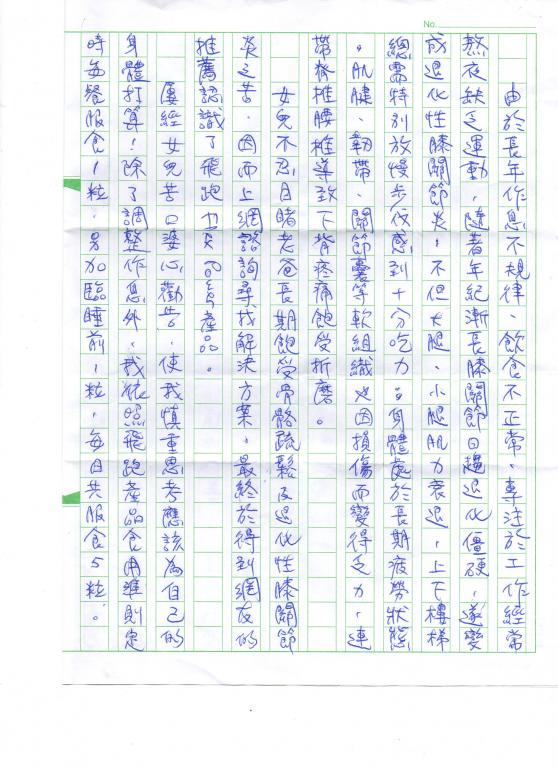 No.
由於長年作息不規律、飲食不正常、專注於工作經常
熬夜缺乏運動，隨著年紀漸長膝關節日趨退化僵硬，遂變
成退化性膝關節炎，不但大腿、小腿肌力衰退，上下樓梯
總需特別放慢步伐感到十分吃力。身體處於長期疲勞狀態
。肌腱、韌帶、關節囊等軟組織也因損傷而變得乏力，連
帶脊椎腰椎導致下背疼痛飽受折磨。
女兒不忍目睹老爸長期飽受骨骼疏鬆及退化性膝關節
炎之苦，因而上網諮詢尋找解決方案，最終於得到網友的
推薦認識了飛跑產品。
屢經女兒苦口婆心勸告，使我慎重思考應該為自己的
身體打算！除了調整作息外，我依照飛跑產品食用準則定
時每餐服食1粒，另加臨睡前1粒，每日共服食5粒。